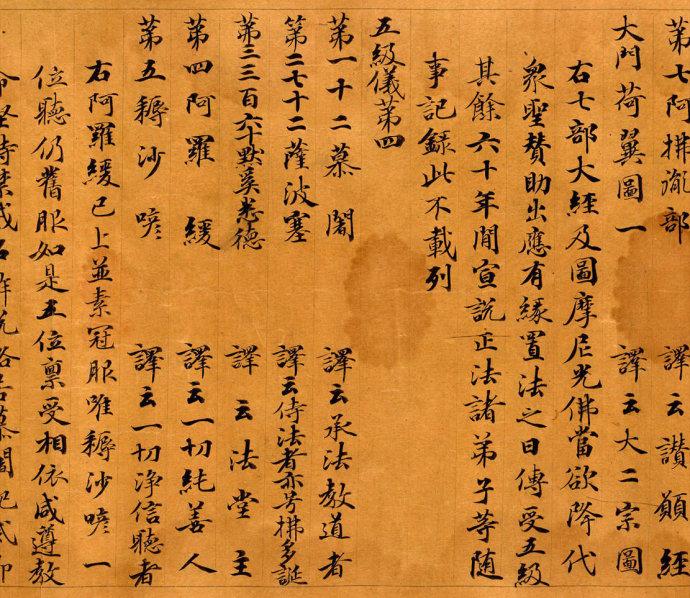 第七阿拂胤部 譯云讚願經
大門荷翼圖一 譯云大二宗圖
右七部大經及圖摩尼光佛當欲降代
衆聖贊助出應有緣置法之日傳受五級
其餘六十年間宣説正法諸弟子等隨
事記録此不載列
五級儀第四
第一十二慕闍 譯云承法教道者
第二七十二薩波塞 譯云侍法者亦号拂多誕
第三三百六十默奚悉德 譯云法堂主
第四阿羅緩 譯云一切純善人
第五耨沙喭 譯云一切淨信聽者
右阿羅緩已上並素冠服唯耨沙喭一
位聽仍舊服如是五位稟受相依咸遵教
命堅持禁戒名解脱路若慕闍犯戒即